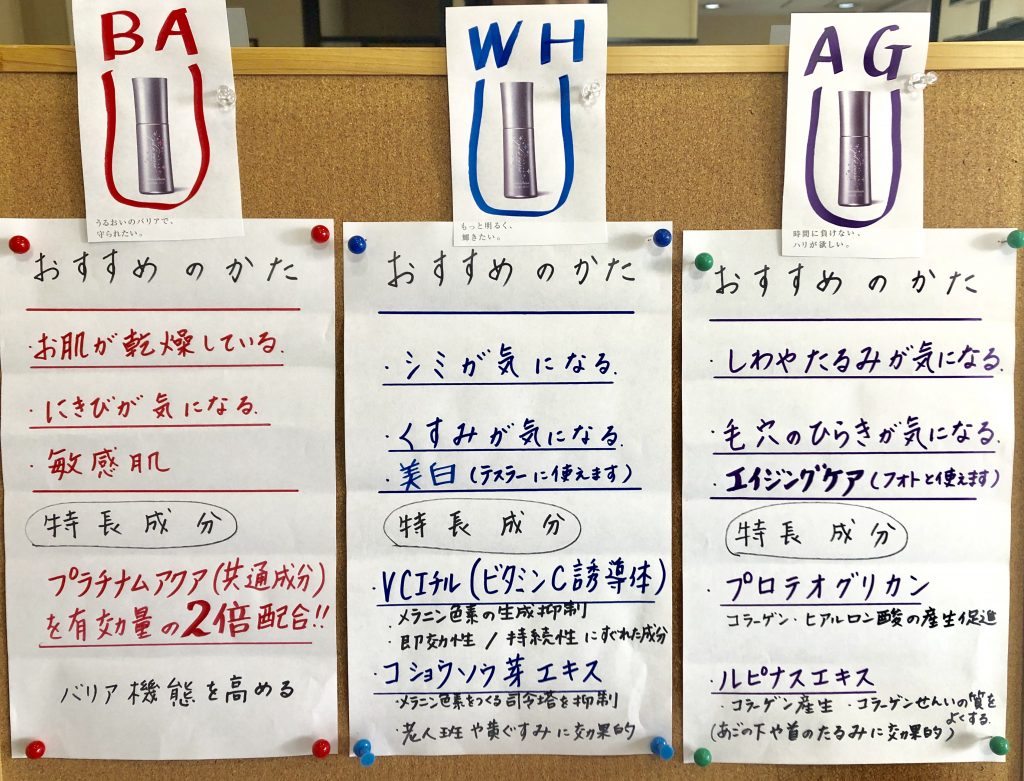 BA
うるおいのバリアで、
守られたい。
おすすめのかた
・お肌が乾燥している.
・にきびが気になる.
・敏感肌
特長成分
プラチナムアクア(共通成分)
を有効量の2倍配合!!
バリア機態を高める
WH
もっと明るく、
輝きたい。
おすすめのかた
・シミが気になる.
・くすみが気になる.
・美白(テスラーに使えます)
特長成分
・VCエチル(ビタミンC誘導体)
・メラニン色素の生成抑制
・即効性/持続性にすぐれた成分
・コショウソウ芽エキス
・メラニン色素をつくる司令塔を抑制
・老人班や黄ぐすみに効果的
AG
時間に負けない、
ハリが欲しい。
おすすめのかた
・しわやたるみが気になる.
・毛穴のひらきが気になる.
・エイジングケア(フォトと使えます)
特長成分
・プロテオグリカン
コラーゲン・ヒアルロン酸の産生促進
・ルピナスエキス
・コラーゲン産生 ・コラーゲンせんいの質を
よくする.
(あごの下や首のたるみに効果的)